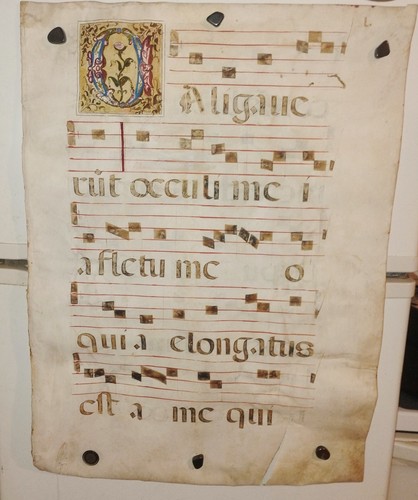 CAligaue
rūt occuli me i
a fletu me o
quia elongatus
est a me qui